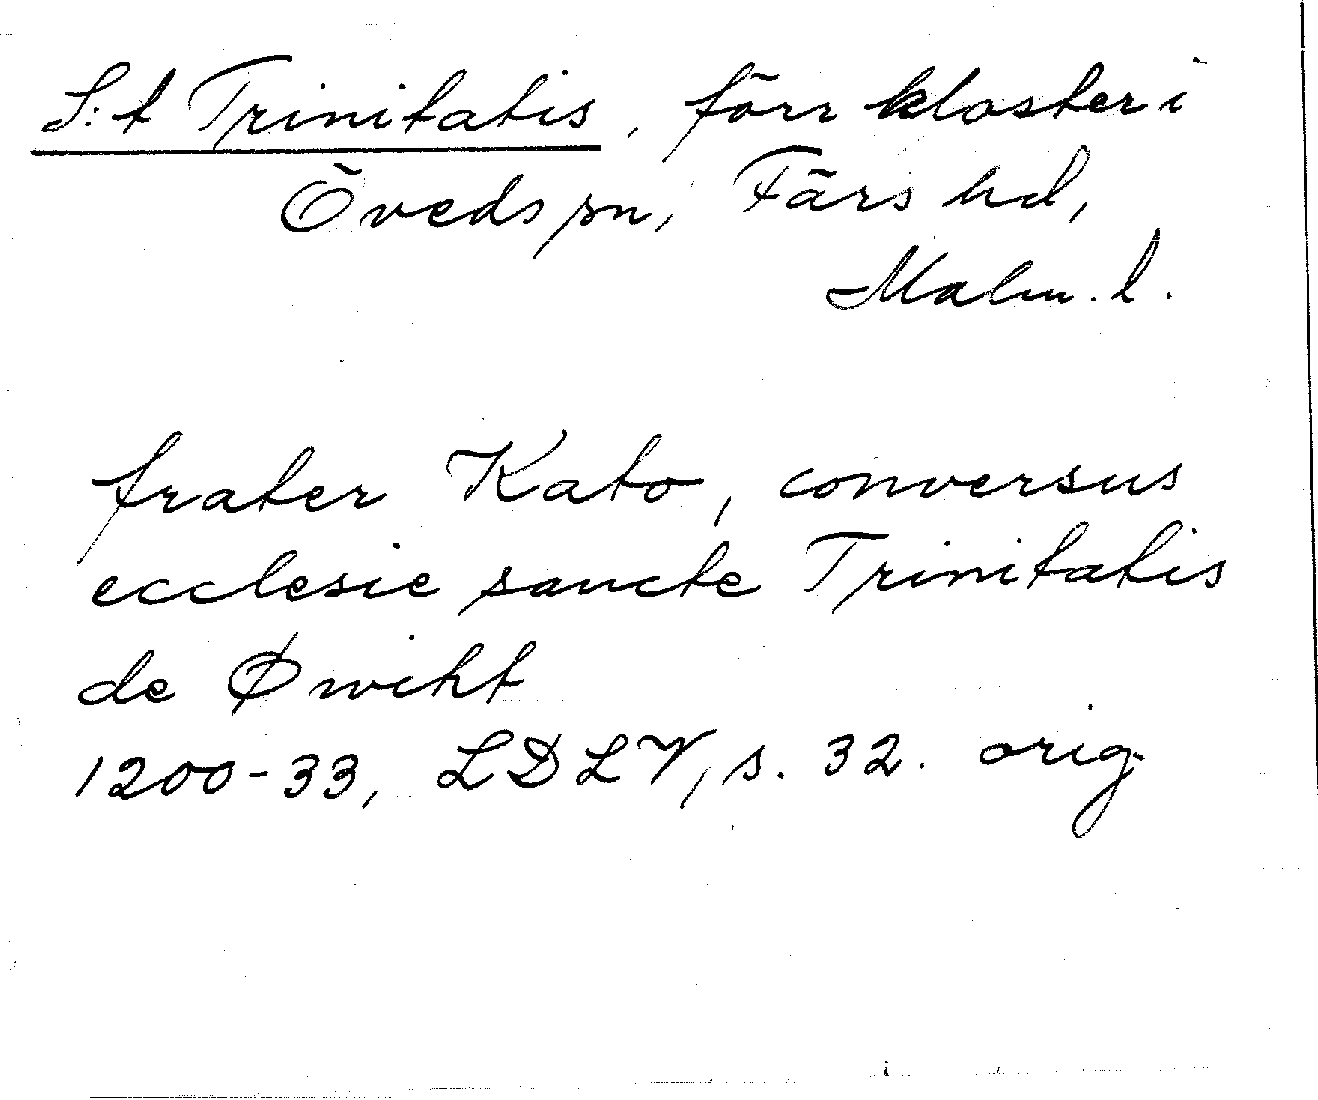 S:t Trinitatis, förr kloster i
Öveds sn, Färs hd,
Malm. l.
frater Kato, conversus
ecclesie sancte Trinitatis
de Øwiht
1200-33, LDLV, s. 32. orig.